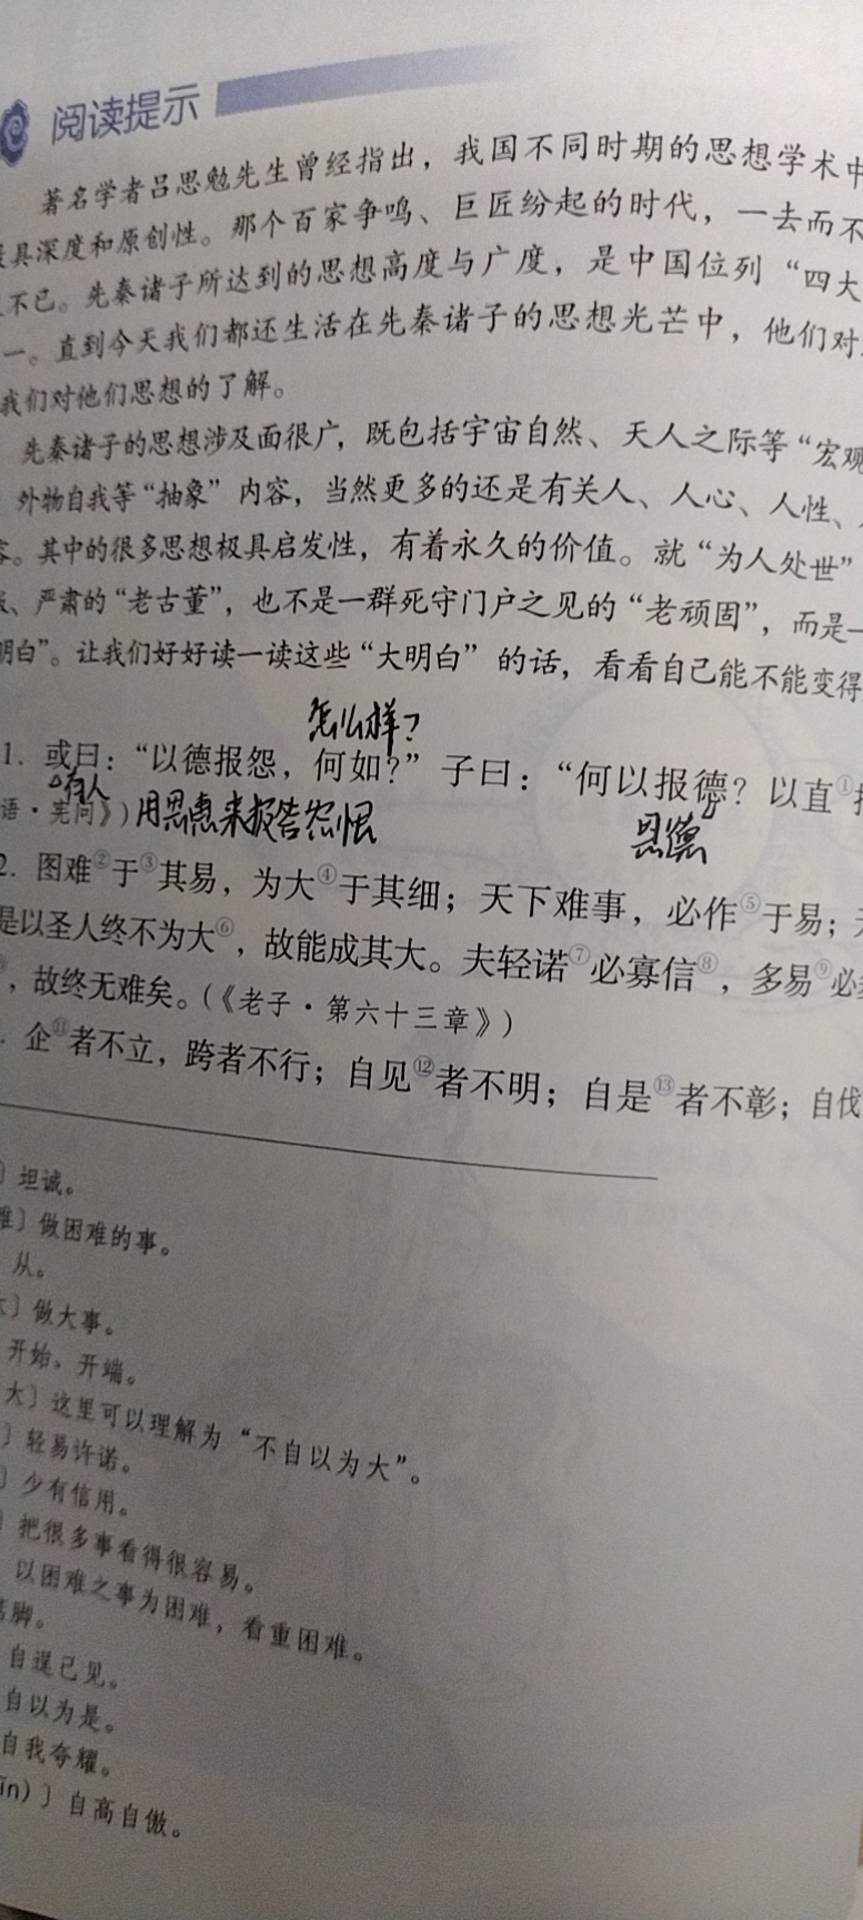 阅读提示
著名学者吕思勉先生曾经指出，我国不同时期的思想学术中
具深度和原创性。那个百家争鸣、巨匠纷起的时代，一去而不
不已。先秦诸子所达到的思想高度与广度，是中国位列“四大
一。直到今天我们都还生活在先秦诸子的思想光芒中，他们对
我们对他们思想的了解。
先秦诸子的思想涉及面很广，既包括宇宙自然、天人之际等“宏观
外物自我等“抽象”内容，当然更多的还是有关人、人心、人性、
容。其中的很多思想极具启发性，有着永久的价值。就“为人处世”
、严肃的“老古董”，也不是一群死守门户之见的“老顽固”，而是一
明白”。让我们好好读一读这些“大明白”的话，看看自己能不能变得
怎么样？
1. 或曰：“以德报怨，何如？”子曰：“何以报德？以直①
有人
语·宪问》）
用恩惠来报答怨恨
恩德
2. 图难②于③其易，为大④于其细；天下难事，必作⑤于易；
是以圣人终不为大⑥，故能成其大。夫轻诺⑦必寡信⑧，多易⑨必
，故终无难矣。（《老子·第六十三章》）
. 企⑪者不立，跨者不行；自见⑫者不明；自是⑬者不彰；自伐
〕坦诚。
难〕做困难的事。
从。
大〕做大事。
开始、开端。
大〕这里可以理解为“不自以为大”。
〕轻易许诺。
〕少有信用。
〕把很多事看得很容易。
以困难之事为困难，看重困难。
脚。
自逞己见。
自以为是。
自我夸耀。
īn）〕自高自傲。